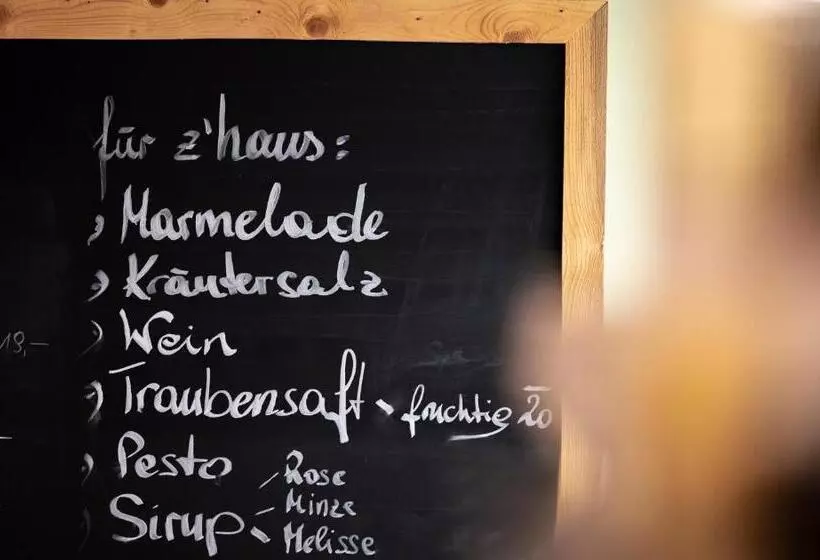 für z'haus:
Marmelade
Kräutersalz
19,–
Wein
Traubensaft - fruchtig 20
Pesto
Rose
Minze
Sirup
Melisse